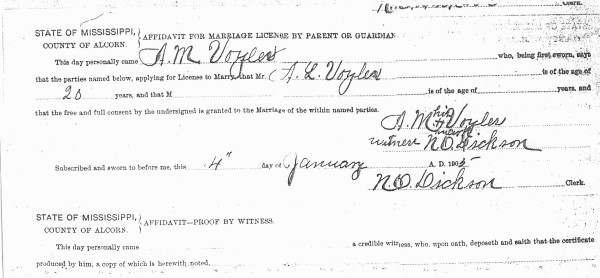 Clerk.
STATE OF MISSISSIPPI,
COUNTY OF ALCORN.
AFFIDAVIT FOR MARRIAGE LICENSE BY PARENT OR GUARDIAN.
This day personally came A. M. Voyles who, being first sworn, says
that the parties named below, applying for License to Marry, that Mr. A. L. Voyles is of the age of
20 years, and that M is of the age of years, and
that the free and full consent by the undersigned is granted to the Marriage of the within named parties.
his
A. M. + Voyles
mark
witness N. O. Dickson
Subscribed and sworn to before me, this 4" day of January A. D. 1905
N. O. Dickson Clerk.
STATE OF MISSISSIPPI,
COUNTY OF ALCORN.
AFFIDAVIT—PROOF BY WITNESS.
This day personally came
a credible witness, who, upon oath, deposeth and saith that the certificate
produced by him, a copy of which is herewith noted.